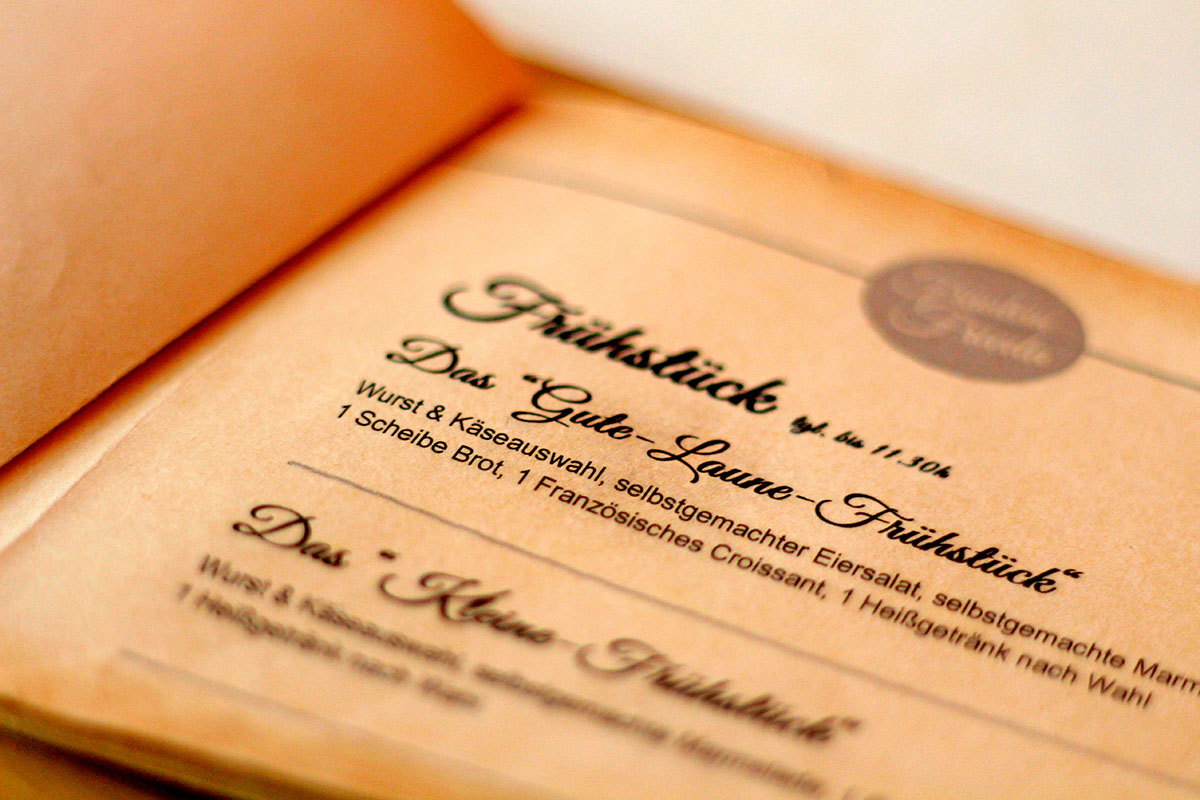 Frühstück tgl. bis 11.30h
Das “Gute-Laune-Frühstück“
Wurst & Käseauswahl, selbstgemachter Eiersalat, selbstgemachte Marm
1 Scheibe Brot, 1 Französisches Croissant, 1 Heißgetränk nach Wahl
Das “Kleine-Frühstück“
Wurst & Käseauswahl, selbstgemachte Marmelade,
1 Heißgetränk nach Wahl